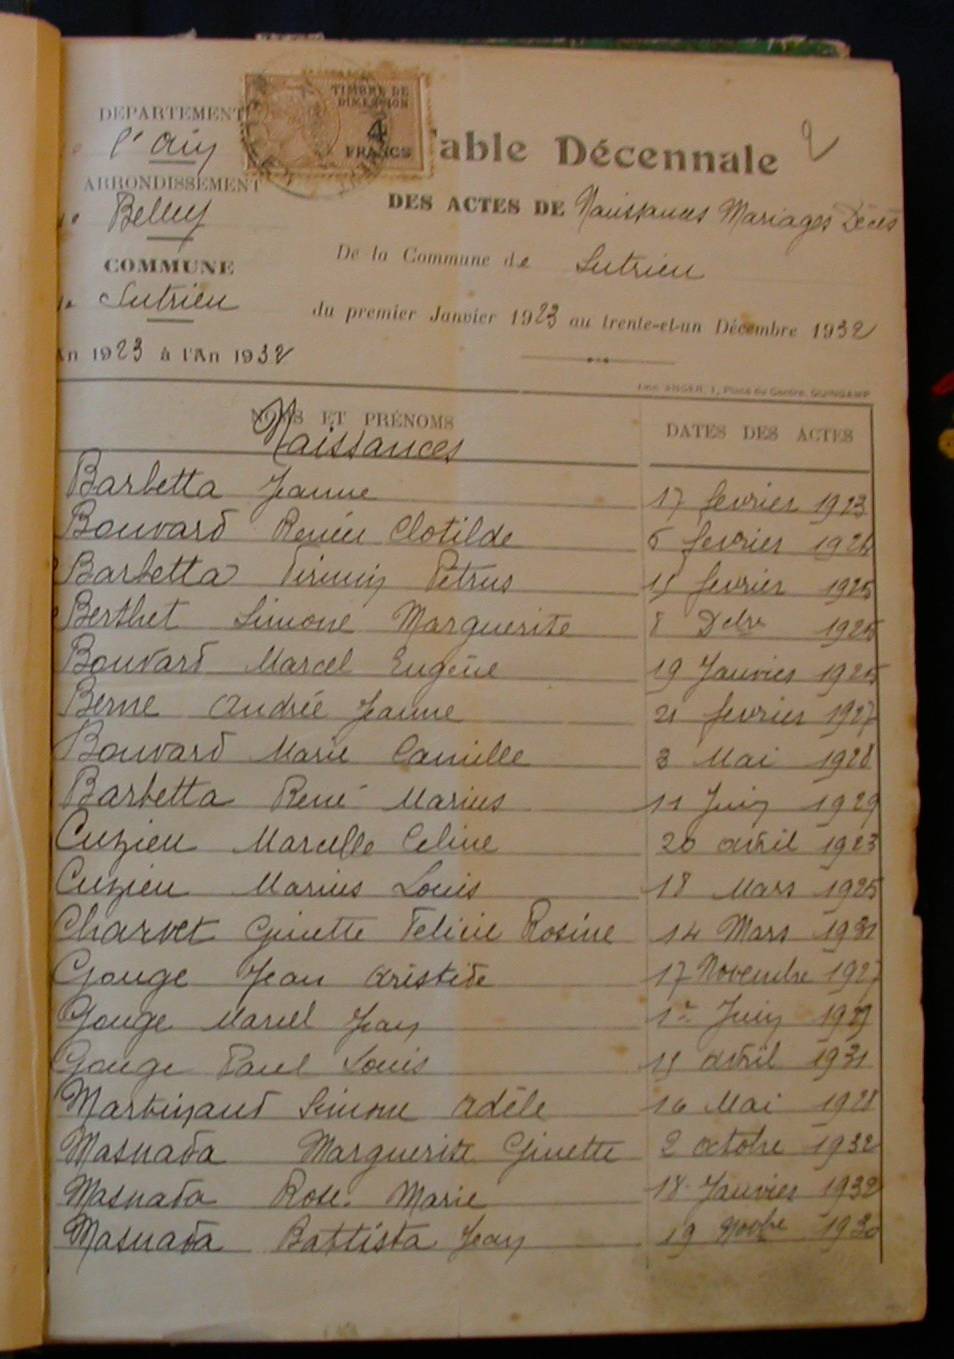 2
DEPARTEMENT
l'Ain
ARRONDISSEMENT
Belley
COMMUNE
Sutrieu
An 1923 à l'An 1932
TIMBRE DE
DIMENSION
4
FRANCS
able Décennale
DES ACTES DE Naissances Mariages Décès
De la Commune de Sutrieu
du premier Janvier 1923 au trente-et-un Décembre 1932
NOMS ET PRÉNOMS
Naissances
DATES DES ACTES
Barbetta Jeanne 17 fevrier 1923
Bouvard Renée Clotilde 6 fevrier 1926
Barbetta Firmin Pétrus 15 fevrier 1925
Berthet Simone Marguerite 8 Dcbre 1925
Bouvard Marcel Eugène 19 Janvier 1925
Berne Andrée Jeanne 21 fevrier 1927
Bouvard Marie Camille 3 Mai 1928
Barbetta René Marius 11 Juin 1929
Cuzieu Marcelle Celine 20 avril 1923
Cuzieu Marius Louis 18 Mars 1925
Charvet Ginette Felicie Rosine 14 Mars 1931
Gouge Jean Aristide 17 Novembre 1927
Gouge Marcel Jean 1er Juin 1929
Gouge Paul Louis 15 avril 1931
Martinand Simone Adèle 16 Mai 1928
Masnada Marguerite Ginette 2 octobre 1932
Masnada Rose Marie 18 Janvier 1932
Masnada Battista Jean 19 Novbre 1930